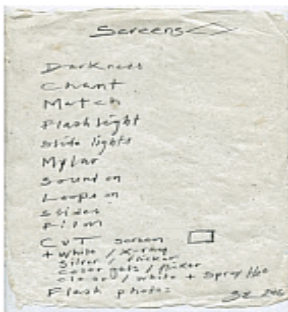 Screens
Darkness
Chant
Match
Flashlight
Slide lights
Mylar
Sound on
Loops on
Slides
Film
Cut screen
+ White / X-ray
Silver / flicker
Color gels / flicker
Clear / white + Spray
Flash photos